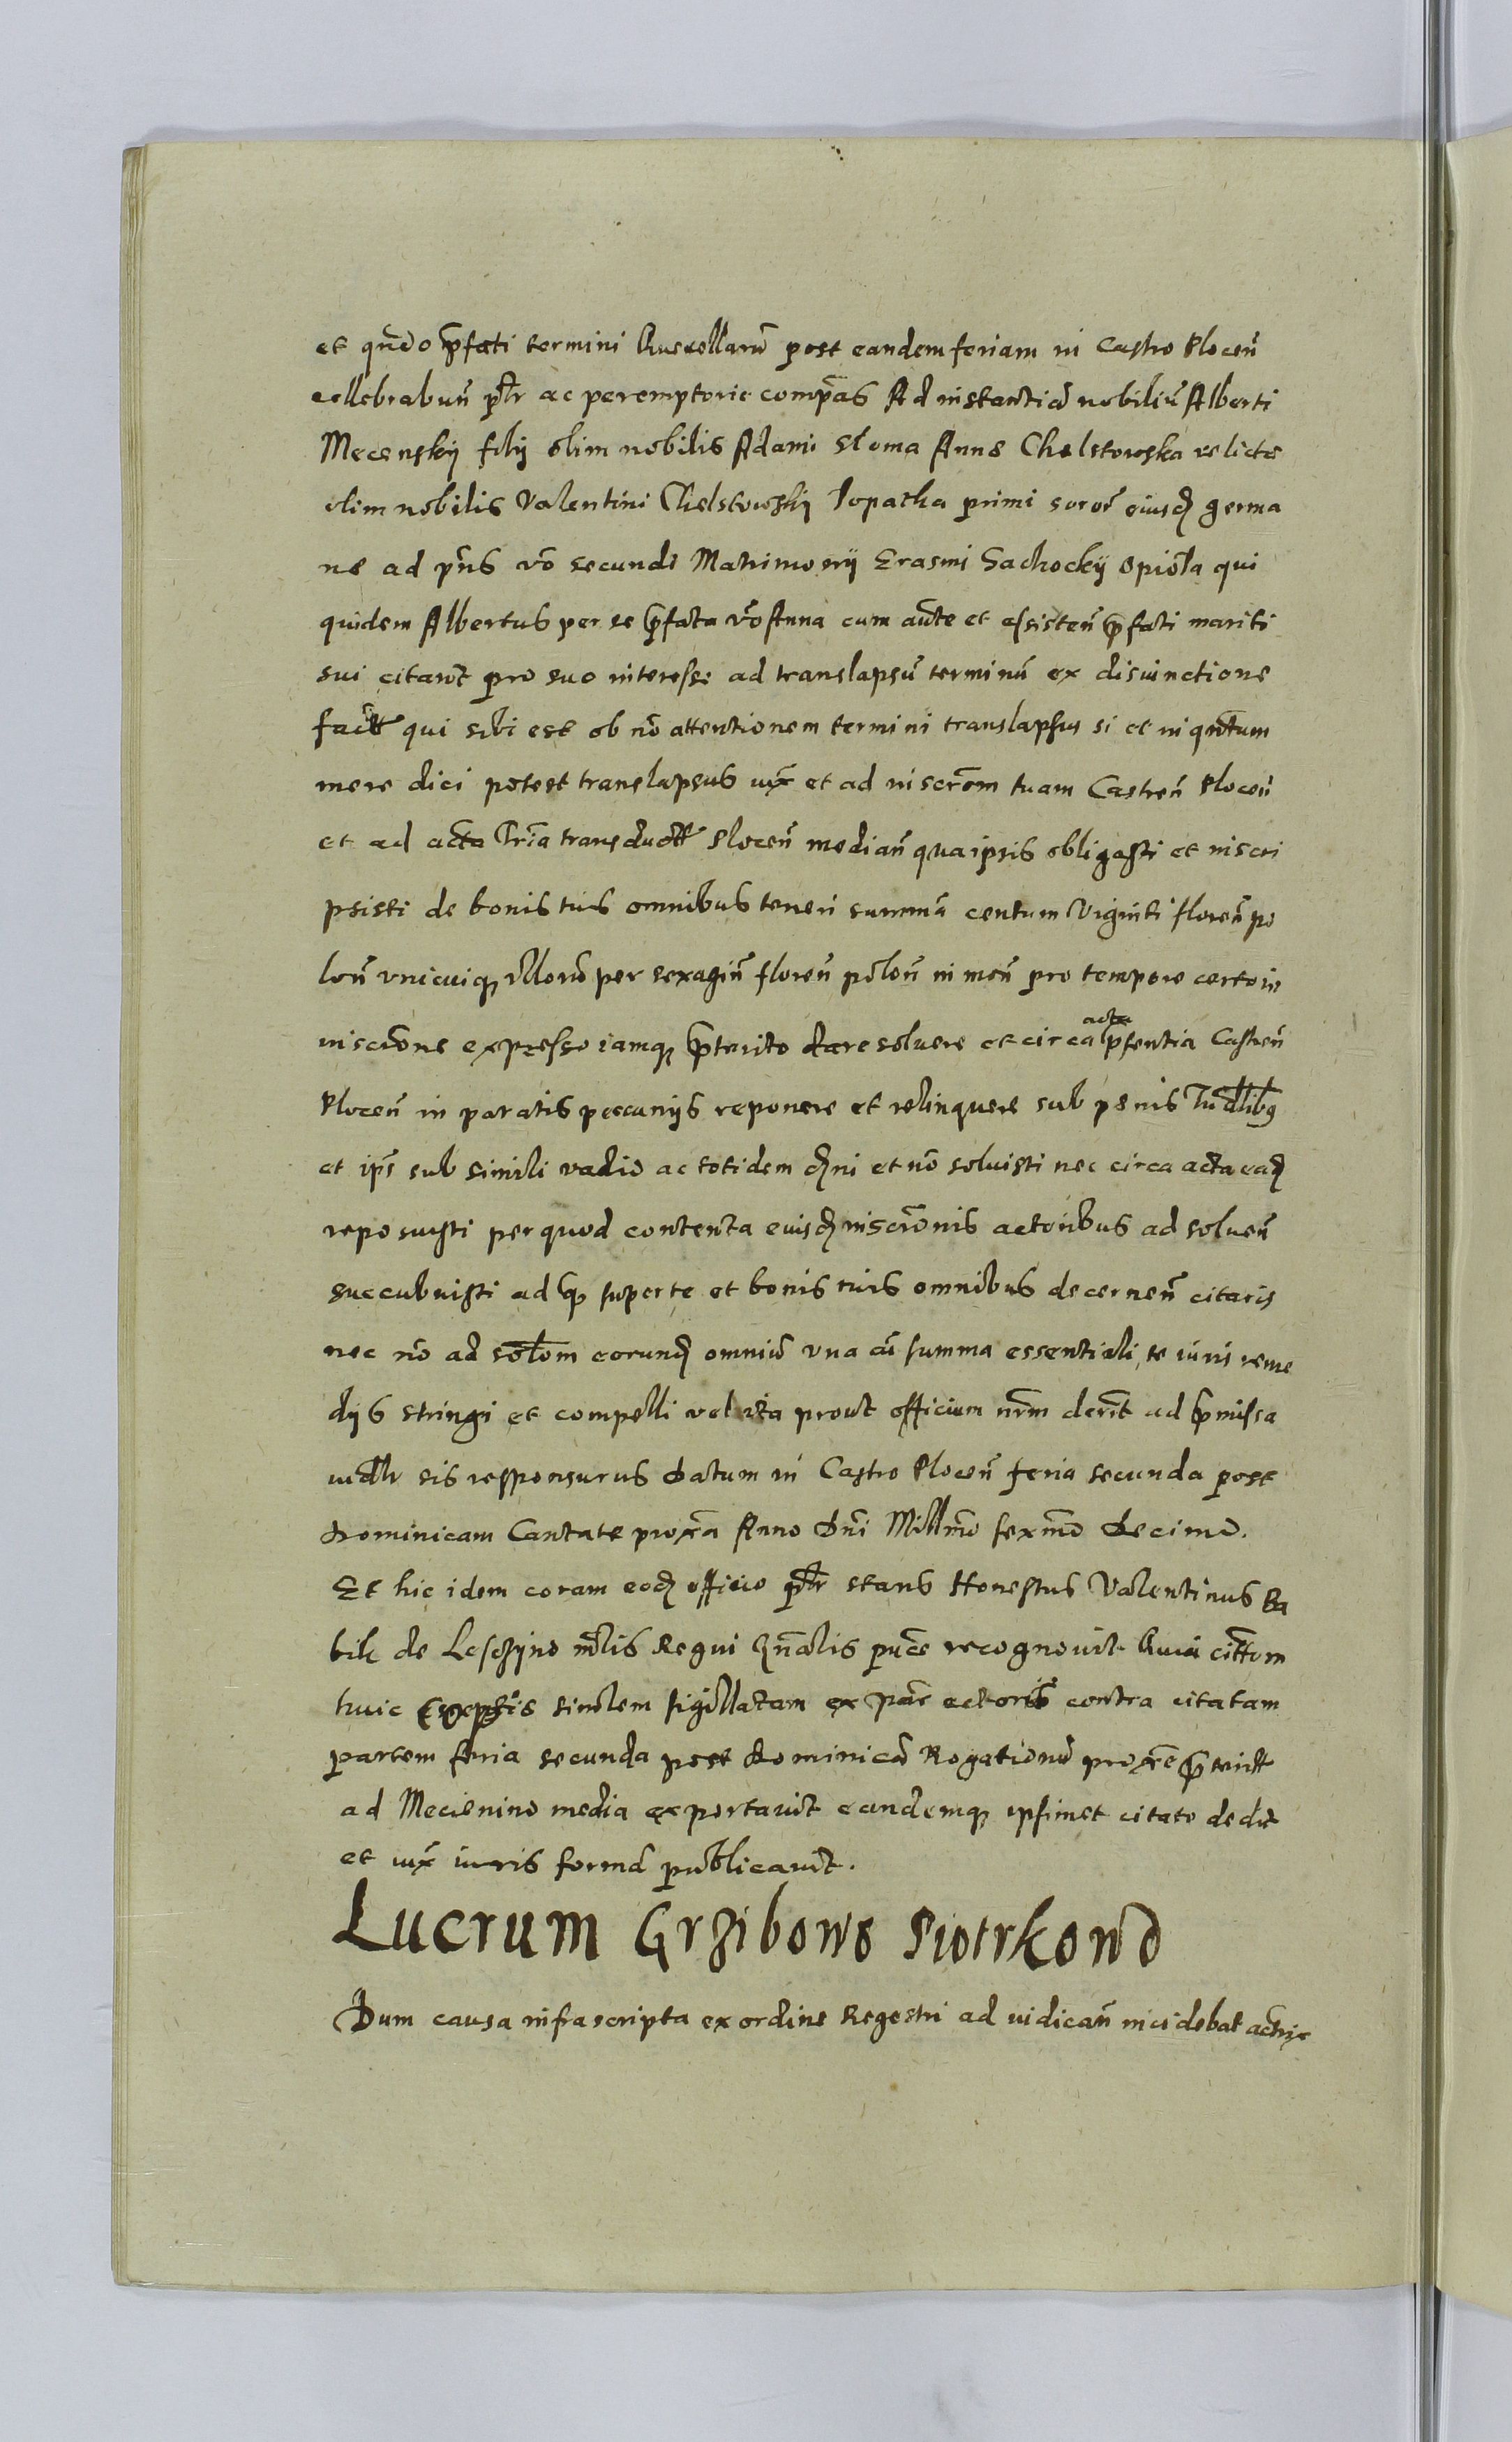 et qñdo p̃fati termini Quaerellarũ post eandem feriam in Castro Plocen̄
cellebrabun̄ p̃lr ac peremptorie compãs Ad instantiã nobiliũ Alberti
Mecensky filij olim nobilis Adami Sloma Anne Chelstowska relicte
olim nobilis Valentini Chelstowskij Lopatka primi soror̃ eiusd germa
ne ad pñs vo secundi Matrimonij Erasmi Sachockij Opiola qui
quidem Albertus per se p̃fata vo Anna cum aũte et assisten̄ p̃fati mariti
sui citant pro suo interesse ad translapsũ terminũ ex disiunctione
fact qui sibi est ob nõ attentionem termini translapsus si et in qñtum
mere dici potest translapsus iux̃ et ad inscr̃om tuam Castren̄ Plocen̄
et ad acta Tr̃ia transduct Plocen̄ median̄ qua ipsis obligasti et inscri
psisti de bonis tuis omnibus teneri summã centum Viginti floren̄ po
lon̄ unicuiq illorũ per sexagin̄ floren̄ polon̄ in mon̄ pro tempore certo in
inscr̃one expresso iamq p̃terito dare solvere et circa acta p̃sentia Castren̄
Plocen̄ in paratis peccunijs reponere et relinquere sub penis Iudlibg
et ip̃s sub simili vadio ac totidem dni et nõ soluisti nec circa acta ead
reposuisti per quod contenta eiusd inscr̃onis actoribus ad soluen̄
succubuisti ad q super te et bonis tuis omnibus decernen̄ citaris
nec nõ ad solõm eorund omniũ una cũ summa essentiali te iuri reme
dijs stringi et compelli vel ita prout officium nr̃m derit ad p̃missa
iudlr sis responsurus Datum in Castro Plocen̄ feria secunda post
Dominicam Cantate proxã Anno Dñi Millmõ sexmõ decimo.
Et hic idem coram eod officio p̃lr stans Honestus Valentinus Ba
bik de Leszczyno mlis Regni gñalis puce recognovit Quia citt̃om
huic similem sigillatam ex par actoris contra citatam
partem feria secunda post Dominicã Rogationũ prox̃e p̃terit
ad Mecienino media exportavit eandemq ipsimet citato dedit
et iux̃ iuris formã publicavit.
Lucrum Grzibowo Piotrkowo
Dum causa infrascripta ex ordine Regestri ad iudican̄ incidebat actrix